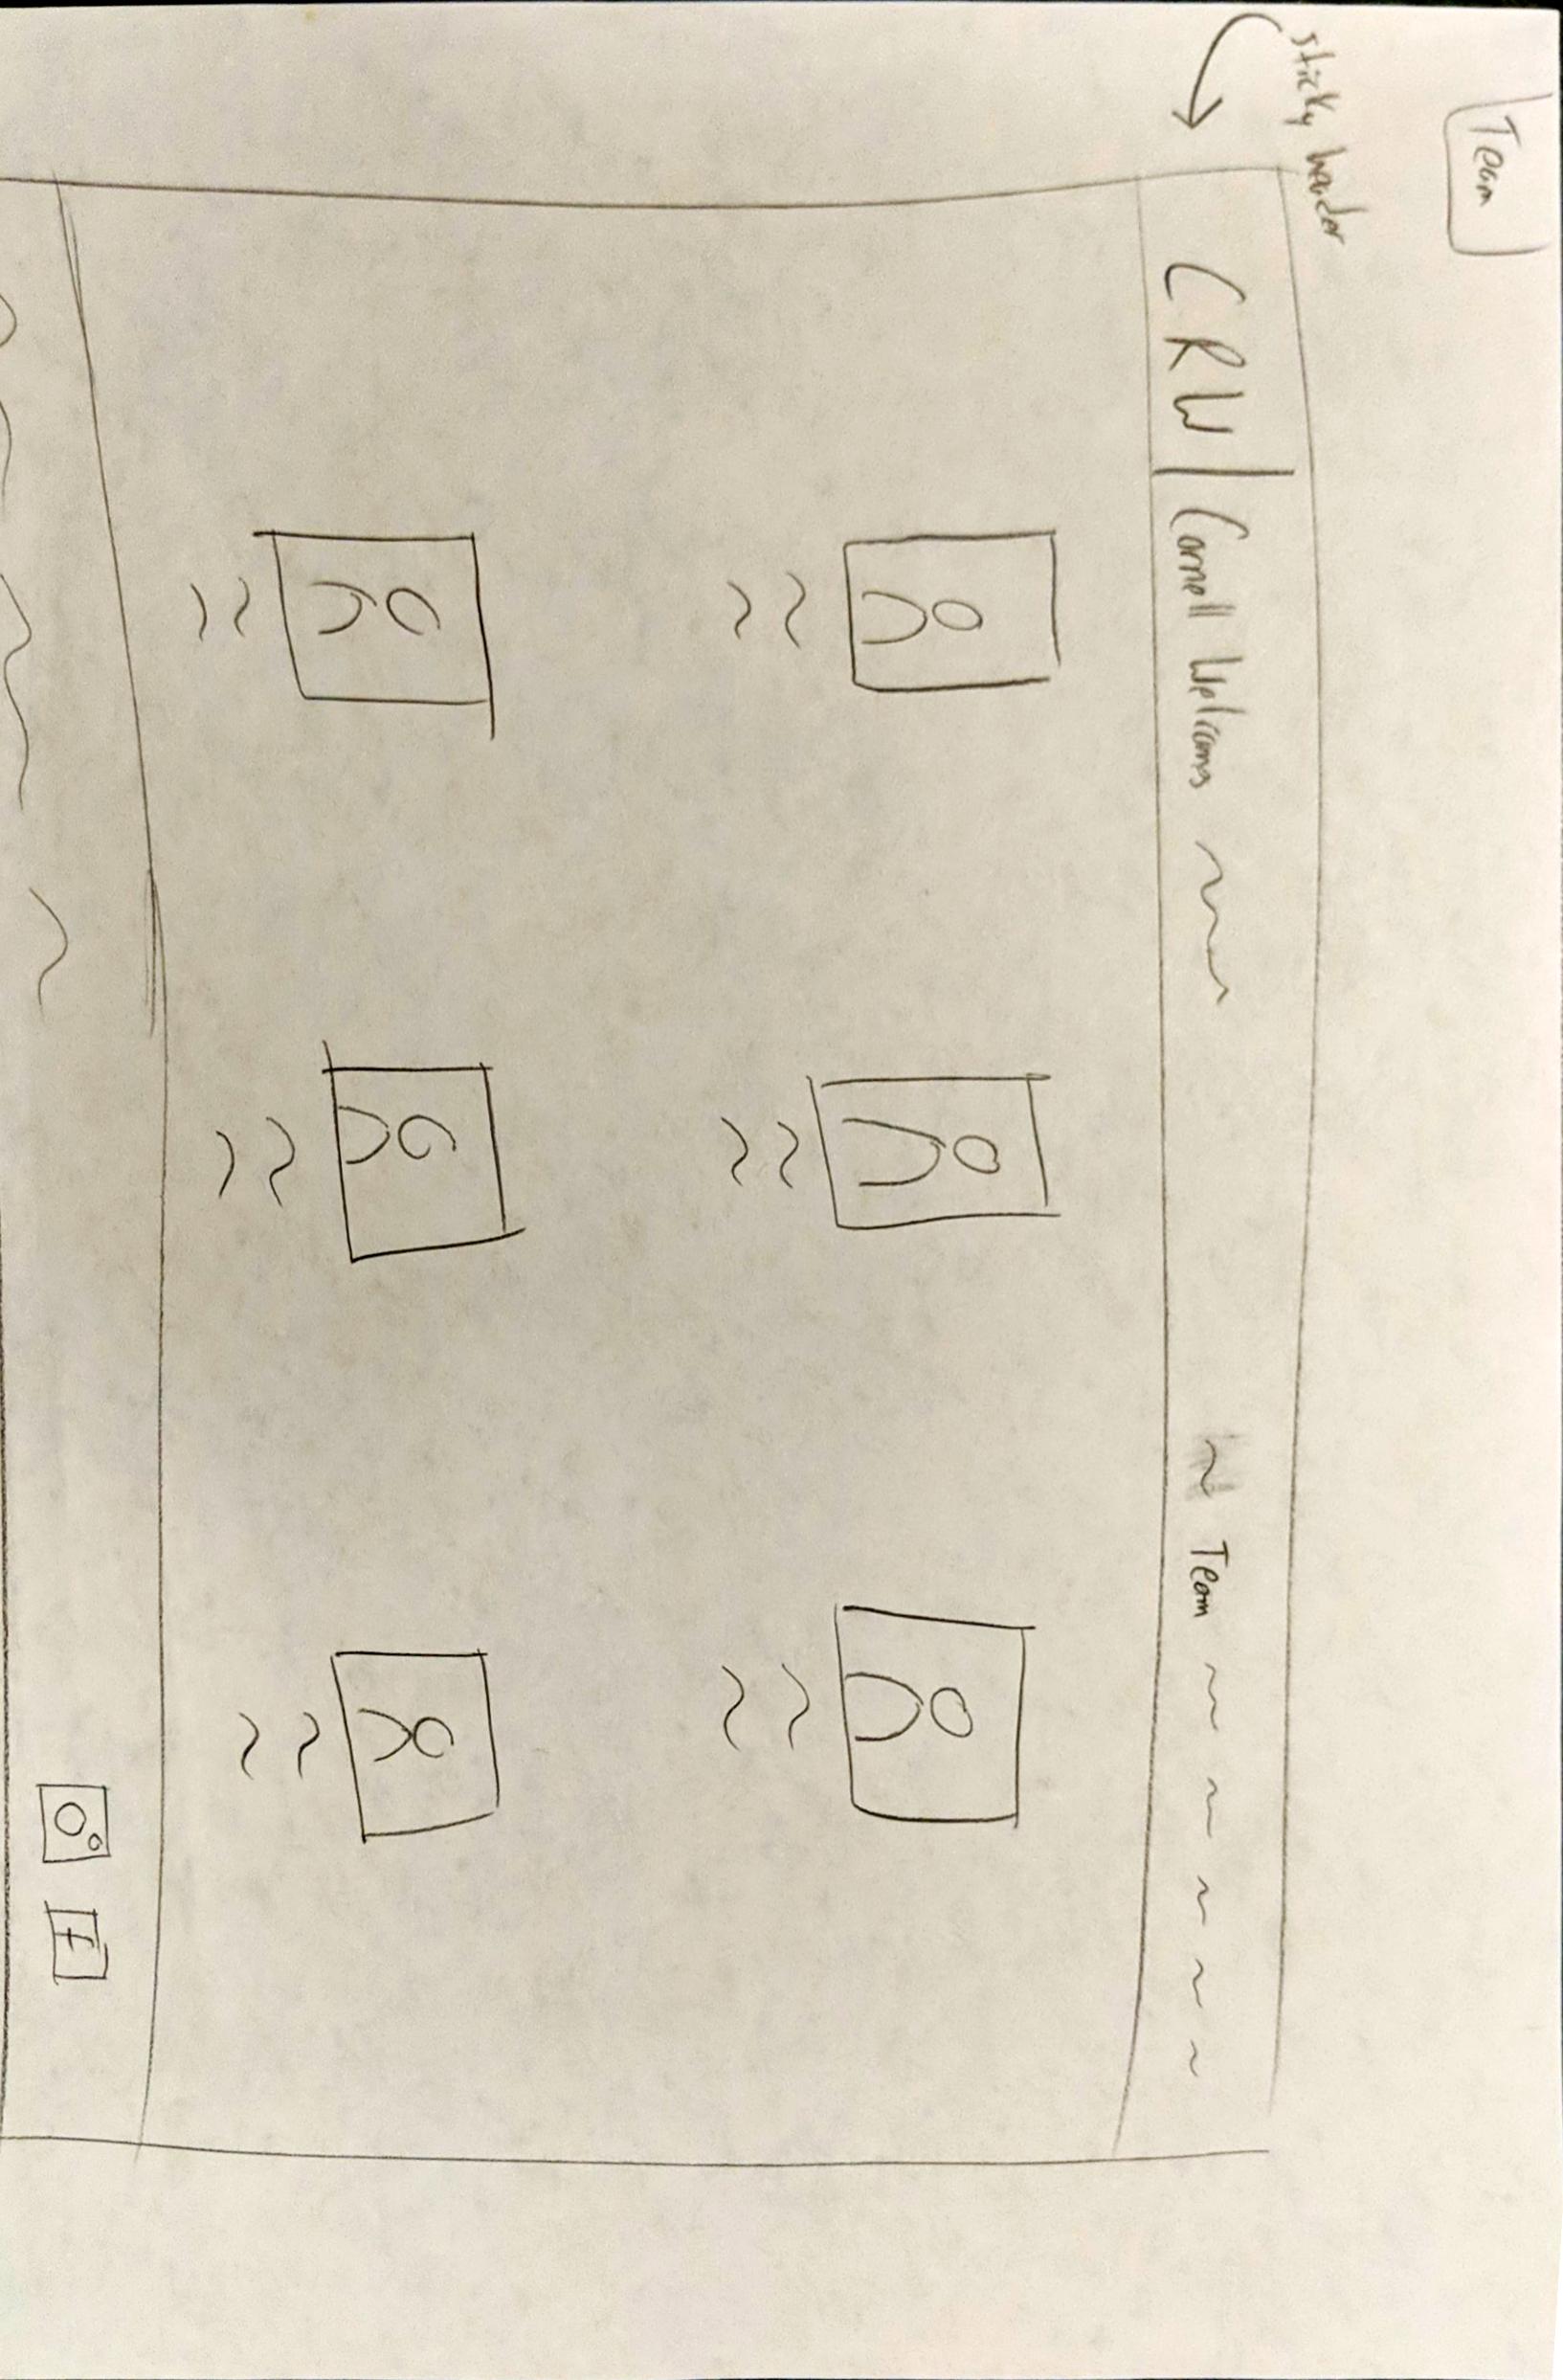 Team
sticky header
CRW | Cornell Welcoms
Team
f